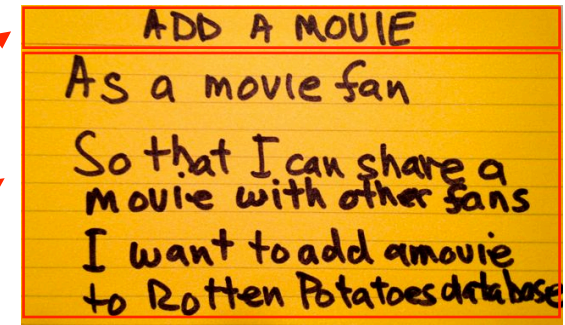 ADD A MOVIE
As a movie fan
So that I can share a
movie with other fans
I want to add a movie
to Rotten Potatoes database